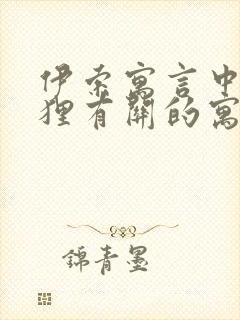 伊索寓言中
狸有關的寓
錦青墨